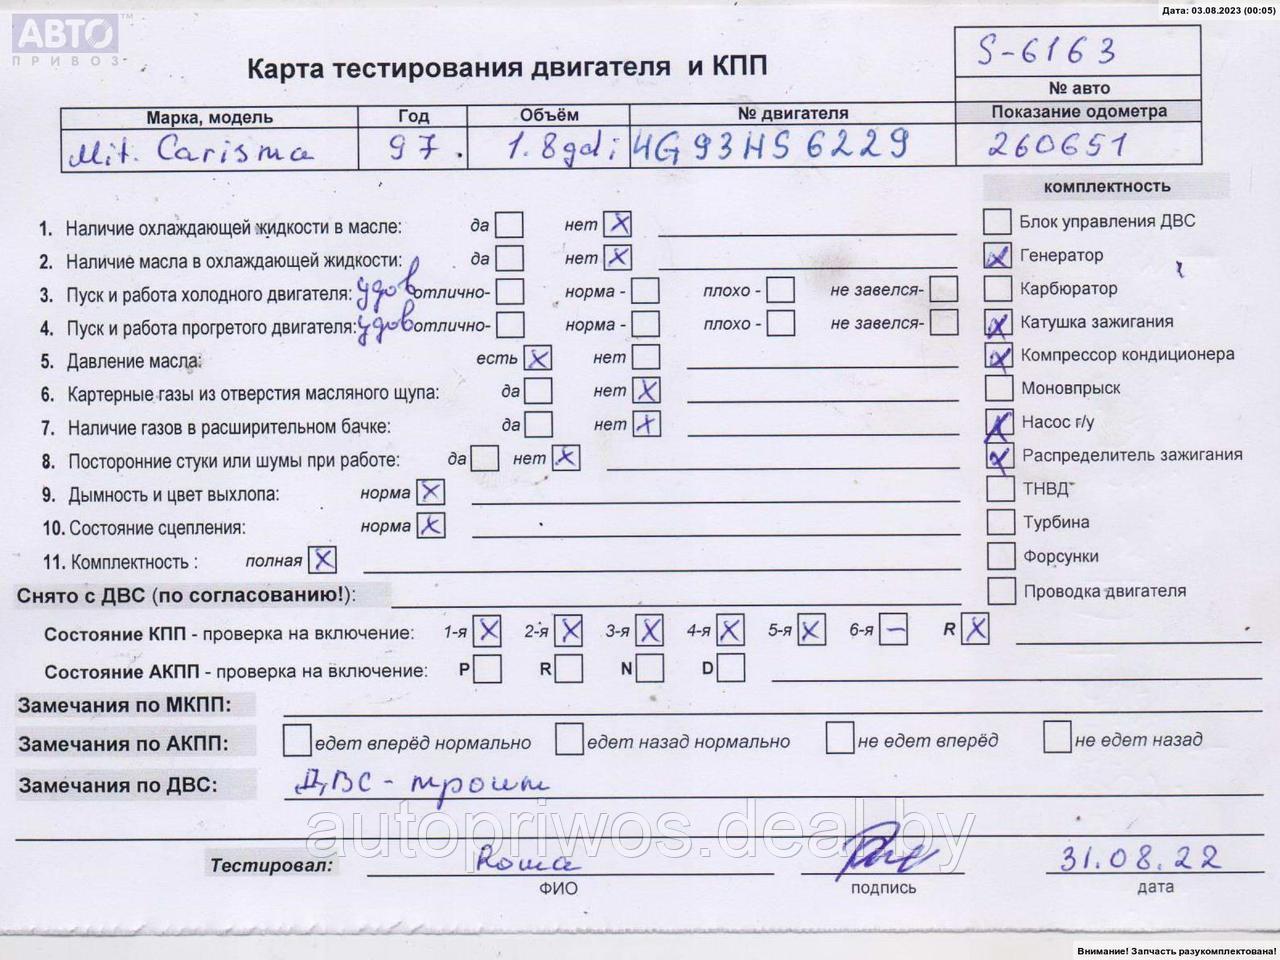 Дата: 03.08.2023 (00:05)
АВТО™
ПРИВОЗ
Карта тестирования двигателя и КПП
S-6163
№ авто
Марка, модель Год Объём № двигателя Показание одометра
Mit. Carisma 97. 1.8gdi 4G93HS6229 260651
комплектность
1. Наличие охлаждающей жидкости в масле: да нет X Блок управления ДВС
2. Наличие масла в охлаждающей жидкости: да нет X X Генератор
3. Пуск и работа холодного двигателя: удов отлично- норма - плохо - не завелся- Карбюратор
4. Пуск и работа прогретого двигателя: удов отлично- норма - плохо - не завелся- X Катушка зажигания
5. Давление масла: есть X нет X Компрессор кондиционера
6. Картерные газы из отверстия масляного щупа: да нет X Моновпрыск
7. Наличие газов в расширительном бачке: да нет X X Насос г/у
8. Посторонние стуки или шумы при работе: да нет X X Распределитель зажигания
9. Дымность и цвет выхлопа: норма X ТНВД
10. Состояние сцепления: норма X Турбина
11. Комплектность : полная X Форсунки
Снято с ДВС (по согласованию!): Проводка двигателя
Состояние КПП - проверка на включение: 1-я X 2-я X 3-я X 4-я X 5-я X 6-я — R X
Состояние АКПП - проверка на включение: P R N D
Замечания по МКПП:
Замечания по АКПП: едет вперёд нормально едет назад нормально не едет вперёд не едет назад
Замечания по ДВС: ДВС - троит
autopriwos.deal.by
Тестировал: Roma 31.08.22
ФИО подпись дата
Внимание! Запчасть разукомплектована!